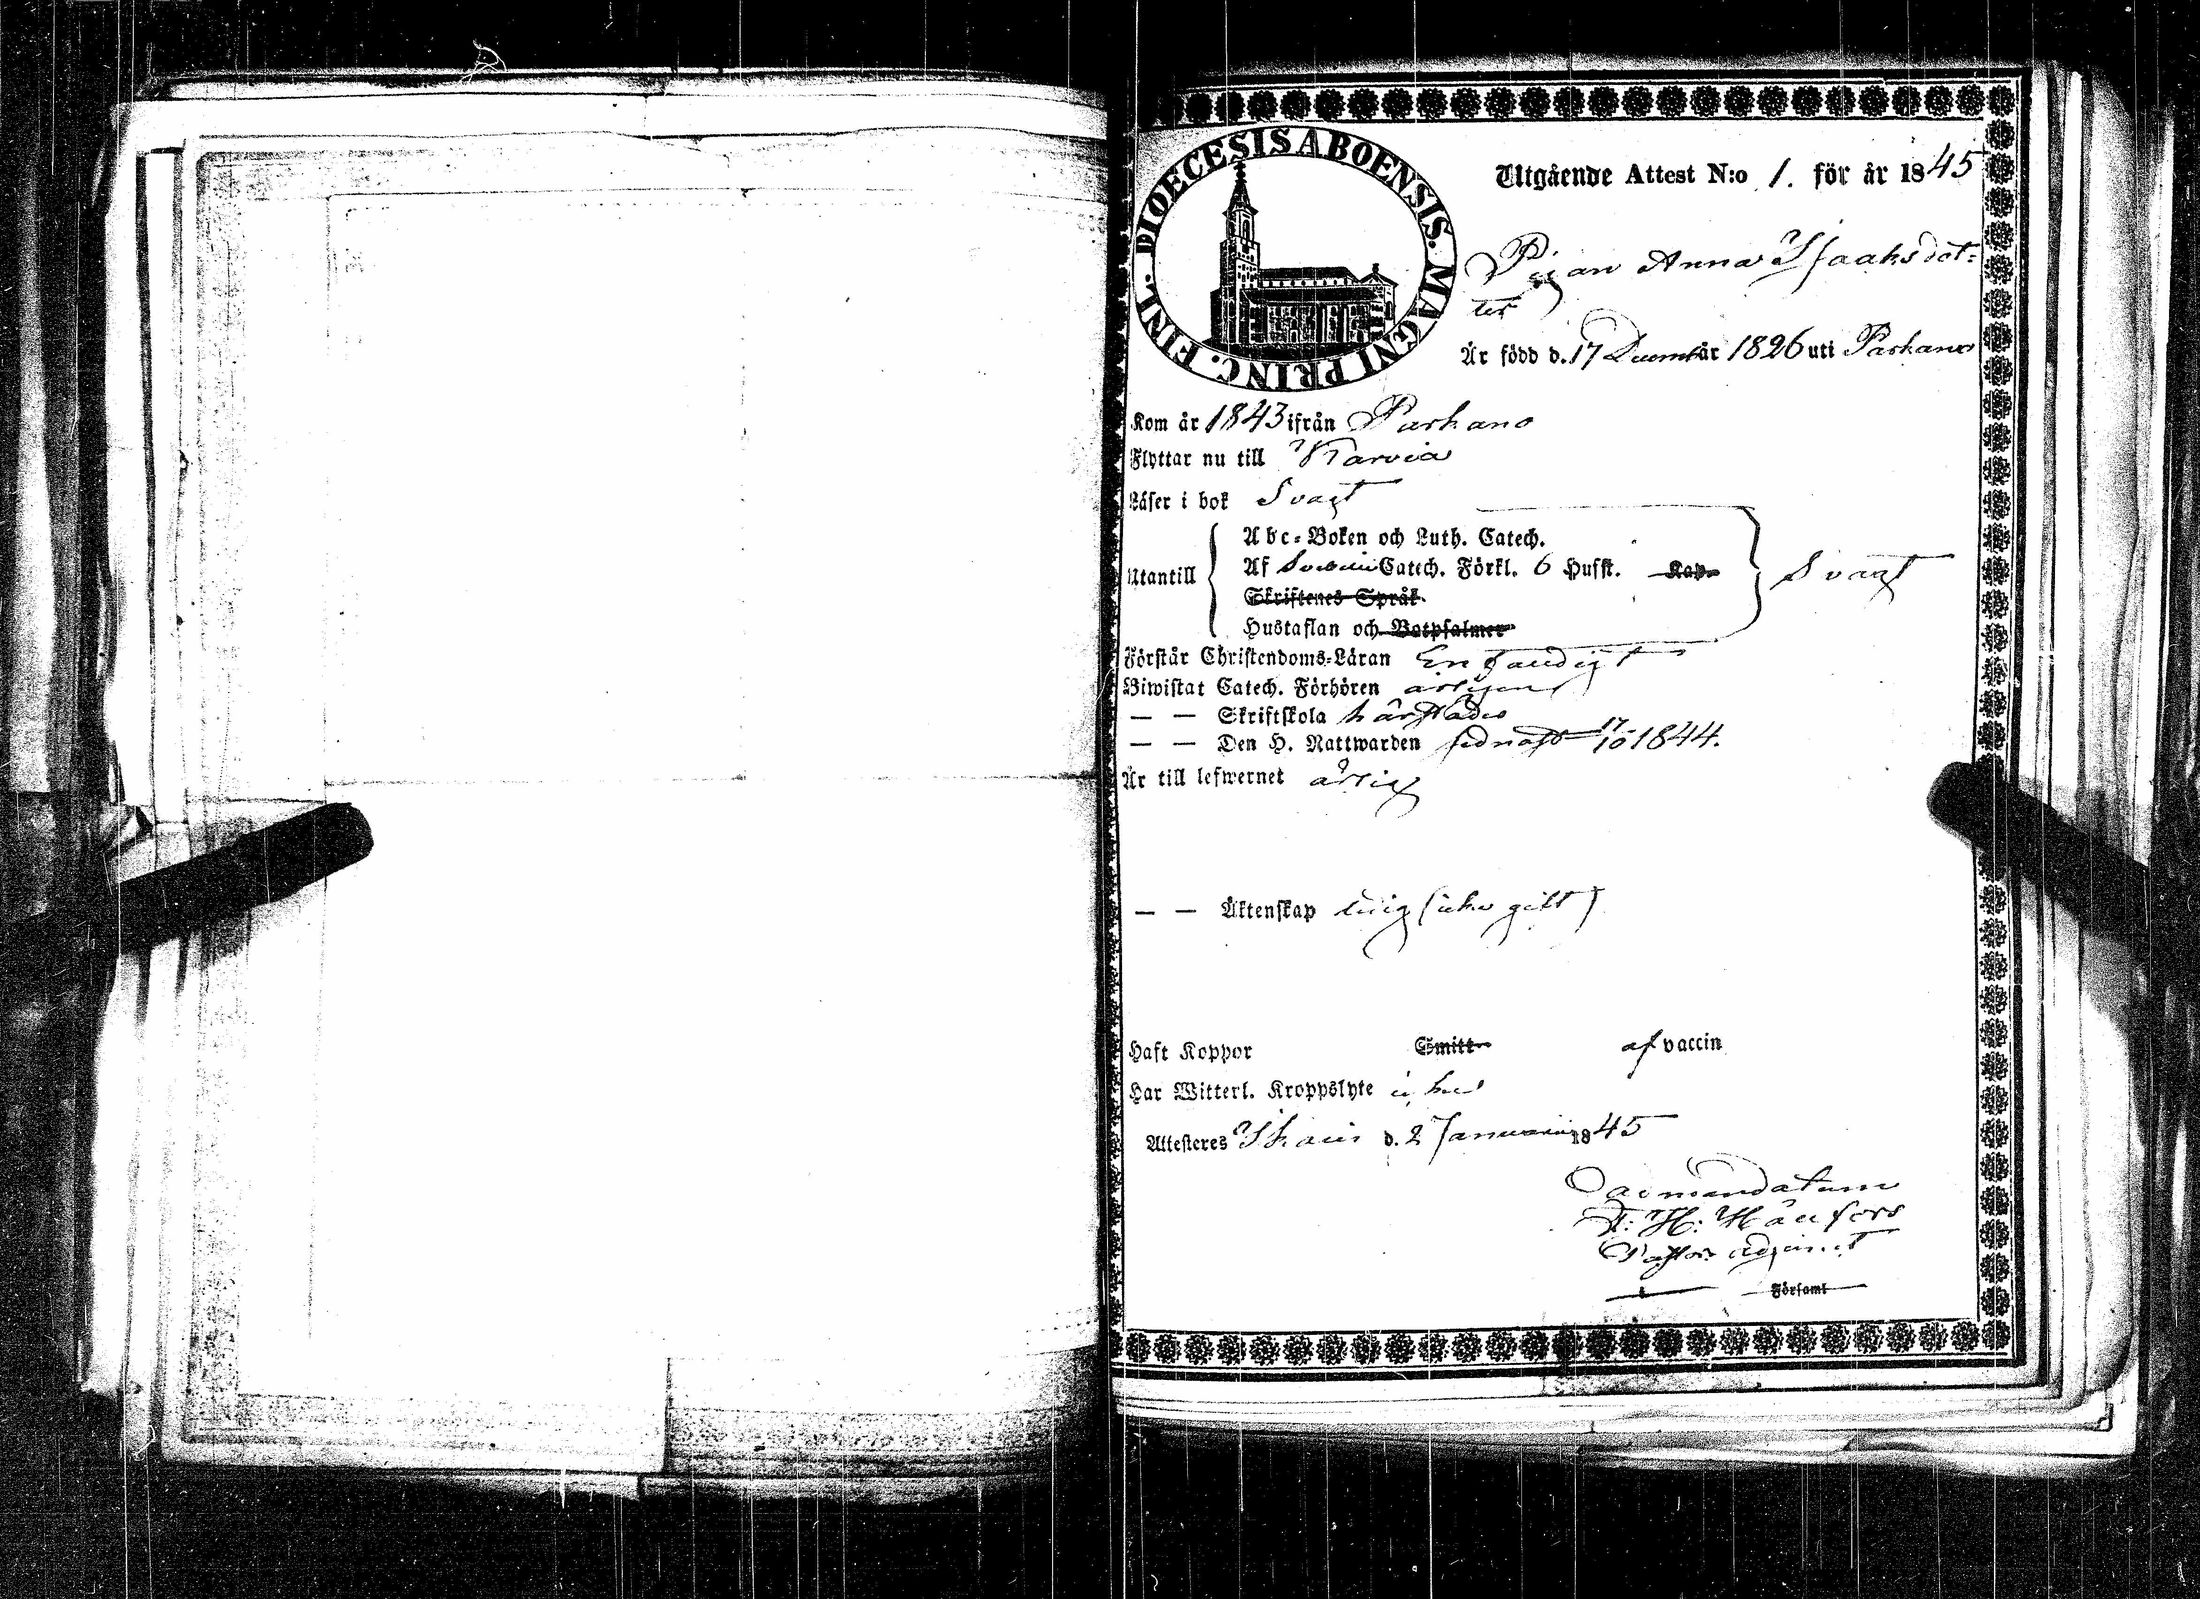 DIOECESIS ABOENSIS. MAGNI PRINC. FINL.
Utgående Attest N:o 1. för år 1845
Pigan Anna Isaaksdot-
ter
Är född d. 17 Decemb år 1826 uti Parkano
Kom år 1843 ifrån Parkano
Flyttar nu till Karvia
Läser i bok Svagt
Abc-Boken och Luth. Catech.
Utantill Af Svebilii Catech. Förkl. 6 Hufst. Kap. Svagt
Skriftenes Språk.
Hustaflan och Botpsalmer
Förstår Christendoms-Läran Enfaldigt
Biwistat Catech. Förhören årligen
— — Skriftskola härstädes
— — Den H. Nattwarden sednast 17/10 1844.
Är till lefwernet ärlig
— — Äktenskap ledig (icke gift)
Haft Koppor Smitt- af vaccin
Har Witterl. Kroppslyte icke
Attesteres Ikalis d. 2 Januarii 1845
Ad mandatum
F: H:
Pastors adjunct
Församl